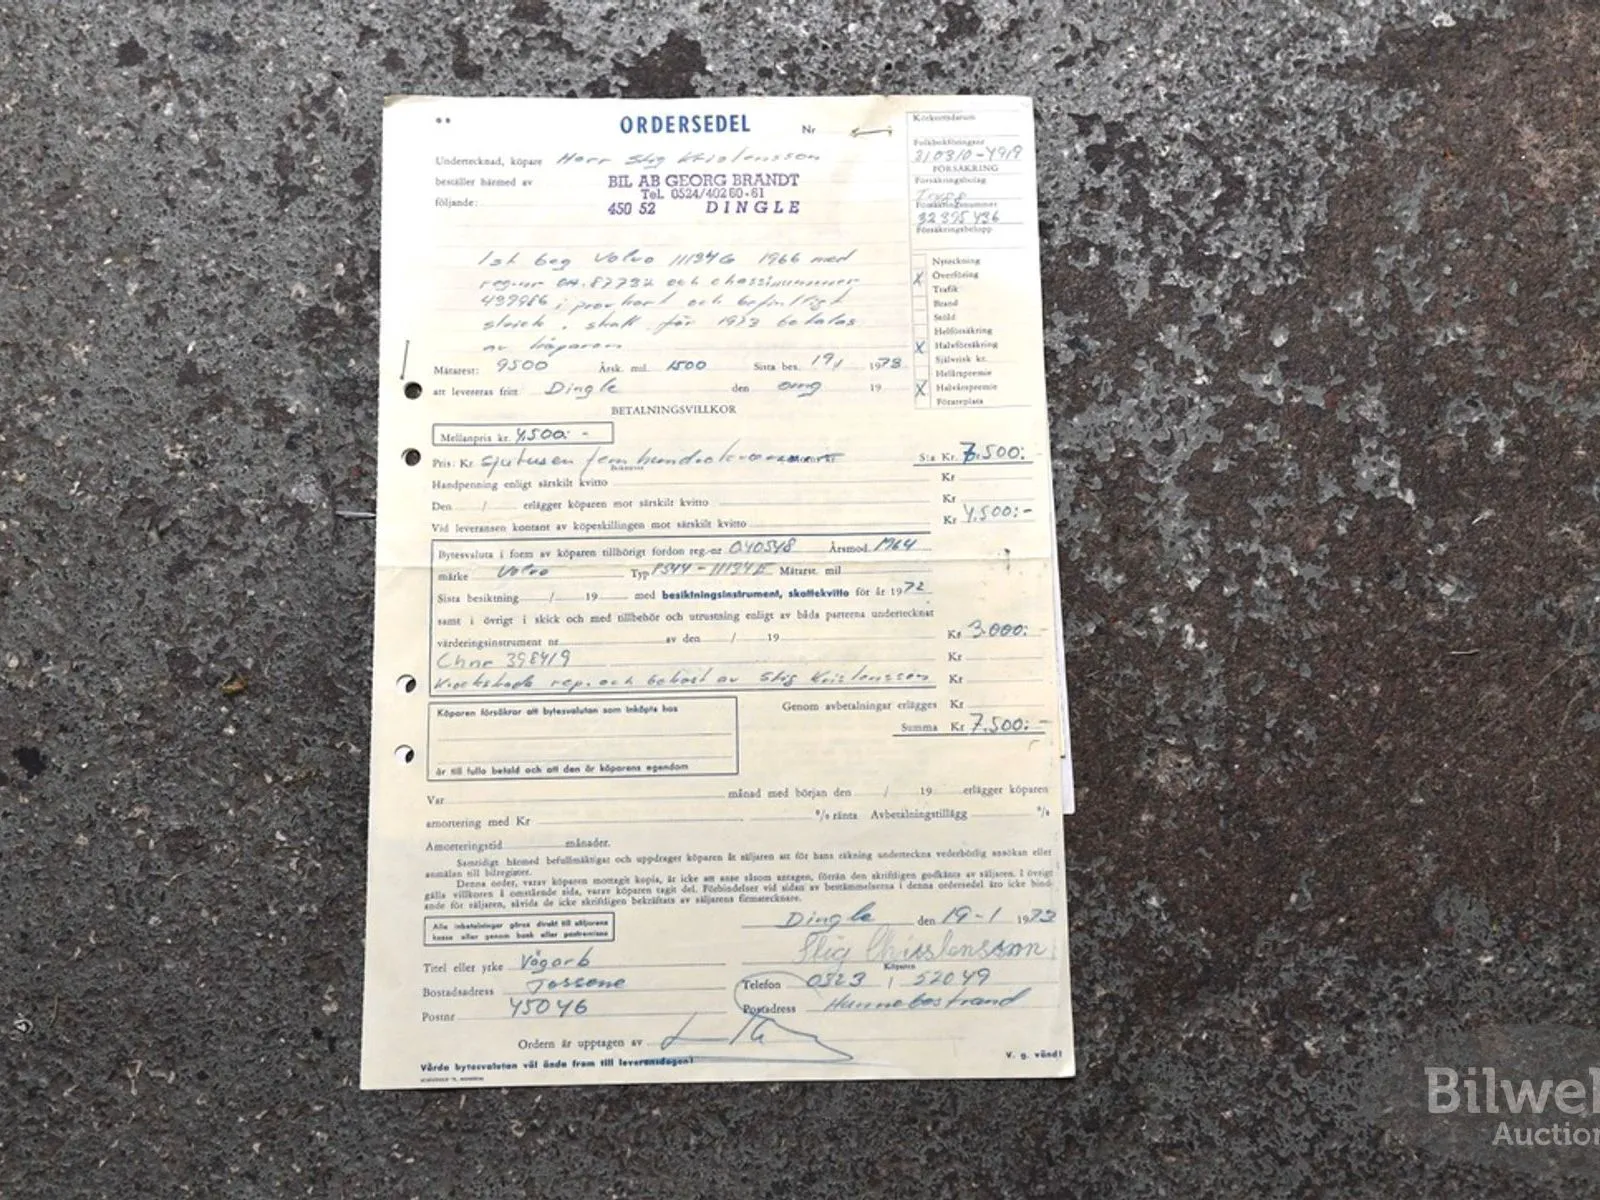 ORDERSEDEL Nr
Körkortsdatum
Folkbokföringsnr
310310-4919
Undertecknad, köpare Herr Stig Kristensson
FÖRSÄKRING
beställer härmed av BIL AB GEORG BRANDT
Försäkringsbolag
Tel. 0524/40260-61
Trygg
följande: 450 52 DINGLE
Försäkringsnummer
32395436
Försäkringsbelopp
1 st beg Volvo 11134G 1966 med
reg.nr OA.87732 och chassinummer
439986 i provkört och befintligt
skick. skatt för 1973 betalas
av köparen
Nyteckning
X Överföring
Trafik
Brand
Stöld
Helförsäkring
X Halvförsäkring
Självrisk kr.
Helårspremie
X Halvårspremie
Förareplats
Mätarest: 9500 Årsk. mil 1500 Sista bes. 19/1 1973
att levereras fritt Dingle den omg 19
BETALNINGSVILLKOR
Mellanpris kr. 4.500:-
Pris: Kr. Sjutusen femhundrakronor S:a Kr. 7.500:-
Handpenning enligt särskilt kvitto Kr
Den / erlägger köparen mot särskilt kvitto Kr
Vid leveransen kontant av köpeskillingen mot särskilt kvitto Kr 4.500:-
Bytesvaluta i form av köparen tillhörigt fordon reg.-nr O40548 Årsmod. M64
märke Volvo Typ P544-11134E Mätarst. mil
Sista besiktning / 19 med besiktningsinstrument, skattekvitto för år 1972
samt i övrigt i skick och med tillbehör och utrustning enligt av båda parterna undertecknat
värderingsinstrument nr av den / 19 Kr 3.000:
Chnr 398419 Kr
rep. och bekost av Stig Kristensson Kr
Köparen försäkrar att bytesvalutan som inköpts hos
är till fullo betald och att den är köparens egendom
Genom avbetalningar erlägges Kr
Summa Kr 7.500:-
Var månad med början den / 19 erlägger köparen
amortering med Kr % ränta Avbetalningstillägg %
Amorteringstid månader.
Samtidigt härmed befullmäktigar och uppdrager köparen åt säljaren att för hans räkning underteckna vederbörlig ansökan eller
anmälan till bilregister.
Denna order, varav köparen mottagit kopia, är icke att anse såsom antagen, förrän den skriftligen godkänts av säljaren. I övrigt
gälla villkoren å omstående sida, varav köparen tagit del. Förbindelser vid sidan av bestämmelserna i denna ordersedel äro icke bind-
ande för säljaren, såvida de icke skriftligen bekräftats av säljarens firmatecknare.
Alla inbetalningar göras direkt till säljarens
kassa eller genom bank eller postremissa
Dingle den 19-1 1973
Stig Christensson
Köparen
Titel eller yrke Vägarb
Telefon 0523 / 52049
Bostadsadress Tossene
Postadress Hunnebostrand
Postnr 45046
Ordern är upptagen av
Vårda bytesvalutan väl ända fram till leveransdagen!
V. g. vänd!
Bilwe
Auction